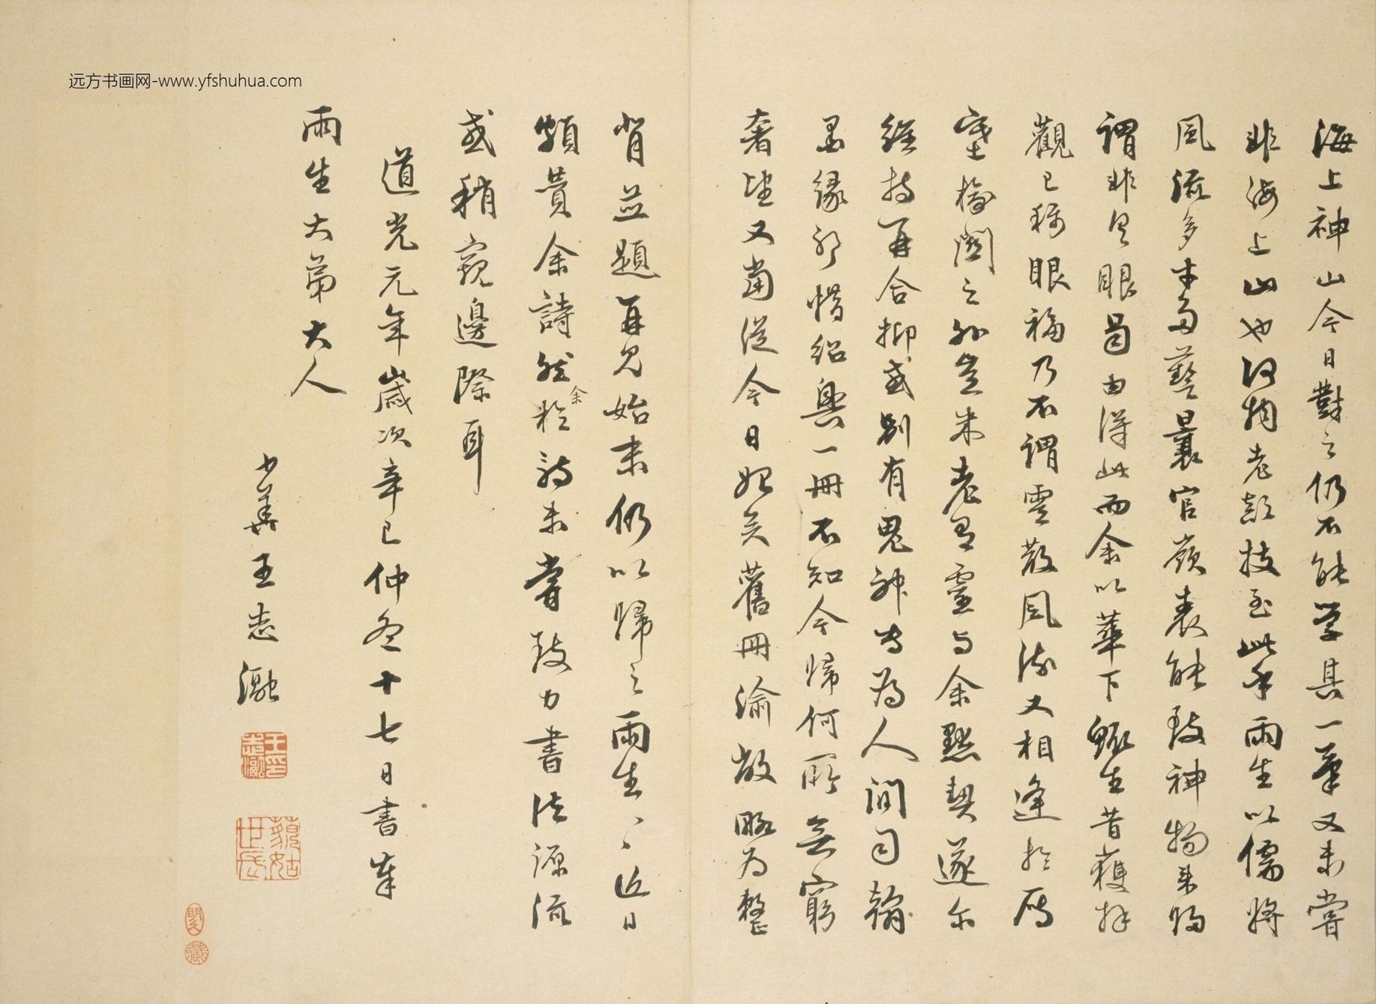 远方书画网-www.yfshuhua.com
海上神山今日對之仍不能學其一筆又未嘗
非海上山也何物老顛技至此乎雨生以儒將
風流多才多藝曩官嶺表能致神物來歸
謂非具眼曷由得此而余以華下鯫生昔獲拜
觀已稱眼福乃不謂雲散風流又相逢於
之外豈米老有靈與余默契遂爾
維持再合抑或別有鬼神專為人間司翰
墨緣耶惜紹興一冊不知今歸何所無窮
奢望又當從今日始矣舊冊渝敝略為整
背並題再見始末仍以歸之雨生、、近日
頗貴余詩然余於詩未嘗致力書法源流
或稍窺邊際耳
道光元年歲次辛巳仲冬十七日書奉
雨生大弟大人
少華王志瀜
王志瀜印
藐姑世氏